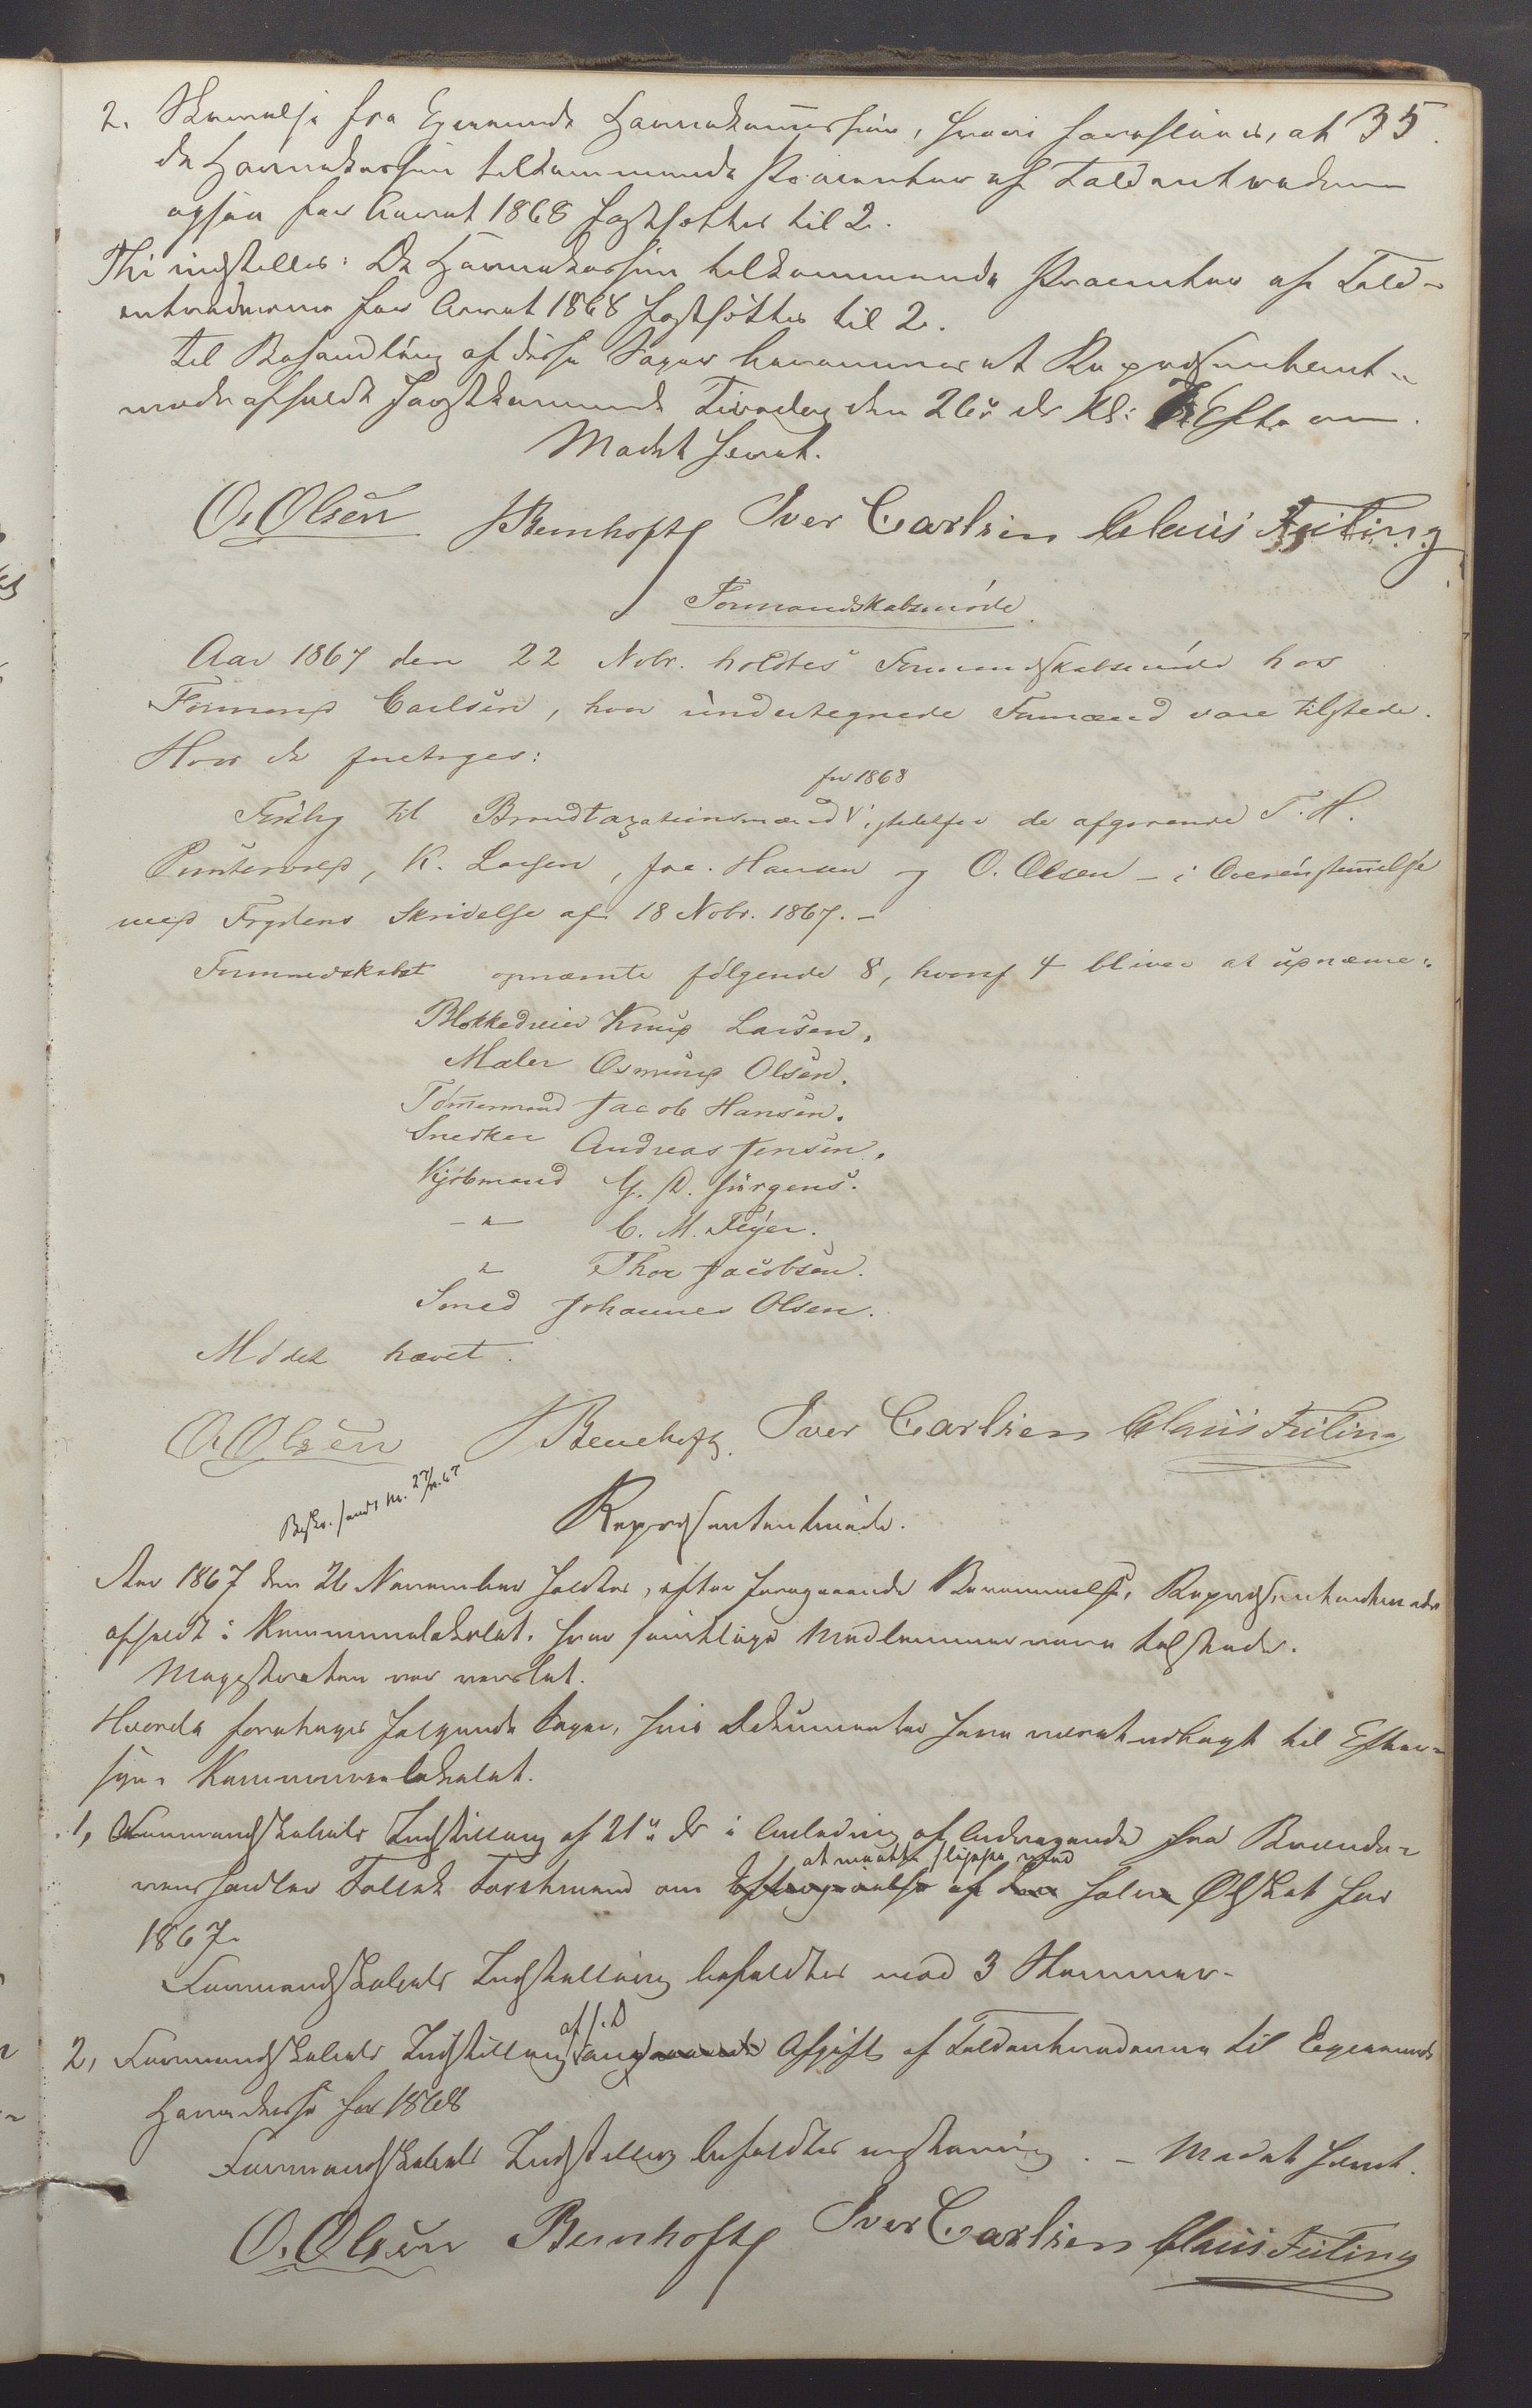 35.
2. Skrivelse fra Egersunds Havnekommission, hvori foreslaaes, at
de Havnekassen tilkommende Procenter af Toldintraderne
ogsaa for Aaret 1868 fastsættes til 2.
Thi indstilles: De Havnekassen tilkommende Procenter af Told-
intraderne for Aaret 1868 fastsættes til 2.
Til Behandling af disse Sager berammes et Repræsentant-
møde afholdt førstkommende Tirsdag den 26de ds Kl: Efterm.
Mødet hævet.
O. Olsen Bernhoft Iver Carlsen Claus Feiling
Formandskabsmøde.
Aar 1867 den 22 Nobr. holdtes Formandskabsmøde hos
Formand Carlsen, hvor undertegnede Formænd vare tilstede.
Hvor da foretoges:
for 1868
Forslag til Brandtaxationsmænd V istedetfor de afgaaende T. H.
Puntervold, K. Larsen, Jac. Hansen og O. Olsen - i Overenstemmelse
med Fogdens Skrivelse af 18 Nobr. 1867. -
Formandskabet opnævnte følgende 8, hvoraf 4 bliver at opnævne:
Blokkedreier Knud Larsen.
Maler Osmund Olsen.
Tømmermand Jacob Hansen.
Snedker Andreas Jensen.
Kjøbmand G. D. Jürgens.
-"- C. M. Feyer.
" Thor Jacobsen.
Smed Johannes Olsen.
Mødet hævet.
O. Olsen Bernhoft. Iver Carlsen Claus Feiling
Beskr. sendt M. 27/11.67
Repræsentantmøde.
Aar 1867 den 26 November holdtes, efter foregaaende Berammelse, Repræsentantmøde
afholdt i Kommunelokalet, hvor samtlige Medlemmer vare tilstede.
Magistraten var varslet.
Hvorda foretoges følgende Sager, hvis Dokumenter have været udlagt til Efter-
syn i Kommunelokalet.
1, Formandskabets Indstilling af 21de ds i Anledning af Andragende fra Brænde-
at maatte slippe med
viinshandler Tollak om Eftergivelse af den halve Ølskat for
1867.
Formandskabets Indstilling bifaldtes med 3 Stemmer.
af s. D
2, Formandskabets Indstilling ang Afgift af Toldintraderne til Egersunds
Havnekasse for 1868
Formandskabets Indstilling bifaldtes enstemmig. - Mødet hævet.
O. Olsen Bernhoft Iver Carlsen Claus Feiling